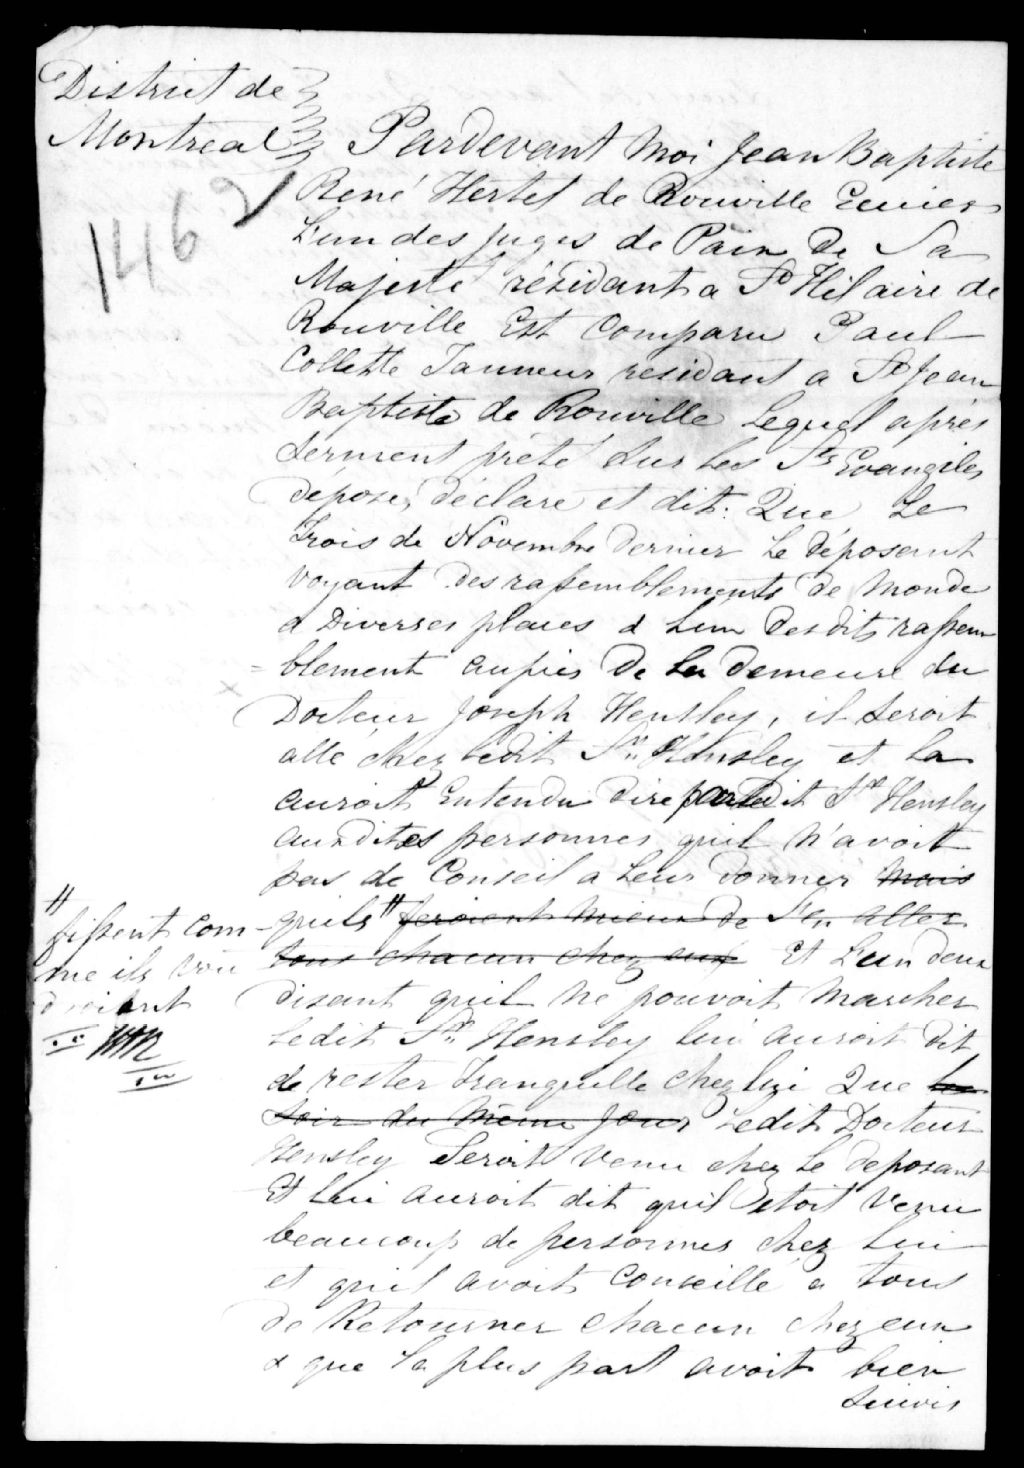 District de
Montreal
1462
Pardevant Moi Jean Baptiste
René Hertel de Rouville Ecuier
L'un des juges de Paix de Sa
Majesté résidant a St Hilaire de
Rouville Est Comparu Paul
Collette Tanneur résidant a St Jean
Baptiste de Rouville Lequel après
serment prété sur Les Sts Evangiles
dépose, déclare et dit: Que Le
Trois de Novembre dernier Le déposant
voyant des rassemblements de Monde
a Diverses places & L'un desdits rassem
=blement aupres de La demeure du
Docteur Joseph Hensley, il seroit
allé chez ledit Sr. Hensley et La
auroit Entendu dire par ledit Sr Hensley
auxdites personnes quil n'avoit
pas de Conseil a Leur donner mais
quils " feroient mieux de S'en aller
tous chacun chez eux Et L'un deux
disant quil ne pouvoit Marcher
Ledit Sr. Hensley lui auroit dit
de rester Tranquille chez lui Que Le
Soir du Même Jour Ledit Docteur
Hensley Seroit venu chez Le deposant
Et Lui auroit dit quil etoit venu
beaucoup de personnes chez Lui
et quil avoit Conseillé a tous
de Retourner chacun chez eux
& que La plus part avoit bien
suivis
"
fissent com-
me ils vou
droient